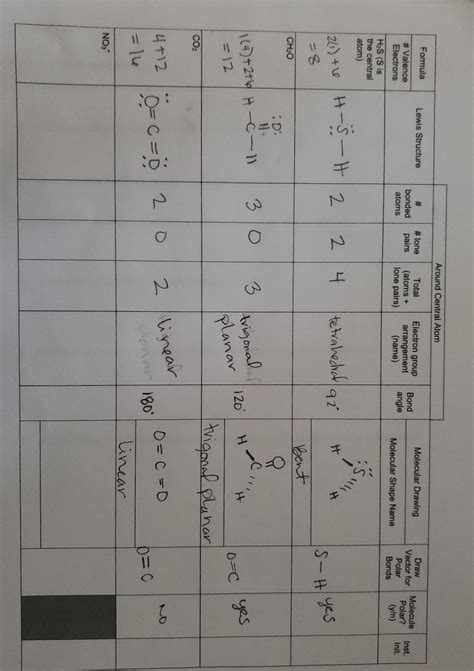 Around Central Atom
Formula
# Valence
Electrons
Lewis Structure
#
bonded
atoms
# lone
pairs
Total
(atoms +
lone pairs)
Electron group
arrangement
(name)
Bond
angle
Molecular Drawing
Molecular Shape Name
Draw
Vector for
Polar
Bonds
Molecule
Polar?
(y/n)
Inst.
Init.
H₂S (S is
the central
atom)
2(1) + 6
= 8
H - S - H
2
2
4
tetrahedral
92°
S
H H
Bent
S - H
yes
CH₂O
1(4)+2+6
= 12
O
H - C - H
3
0
3
trigonal
planar
120°
O
H C H
trigonal planar
O=C
yes
CO₂
4 + 12
= 16
O = C = O
2
0
2
linear
180°
O = C = O
linear
O = C
no
NO₂⁻